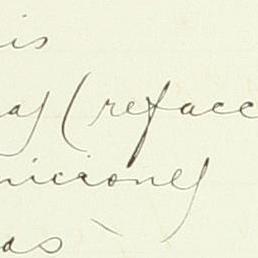 is
as (refacc
niciones
as